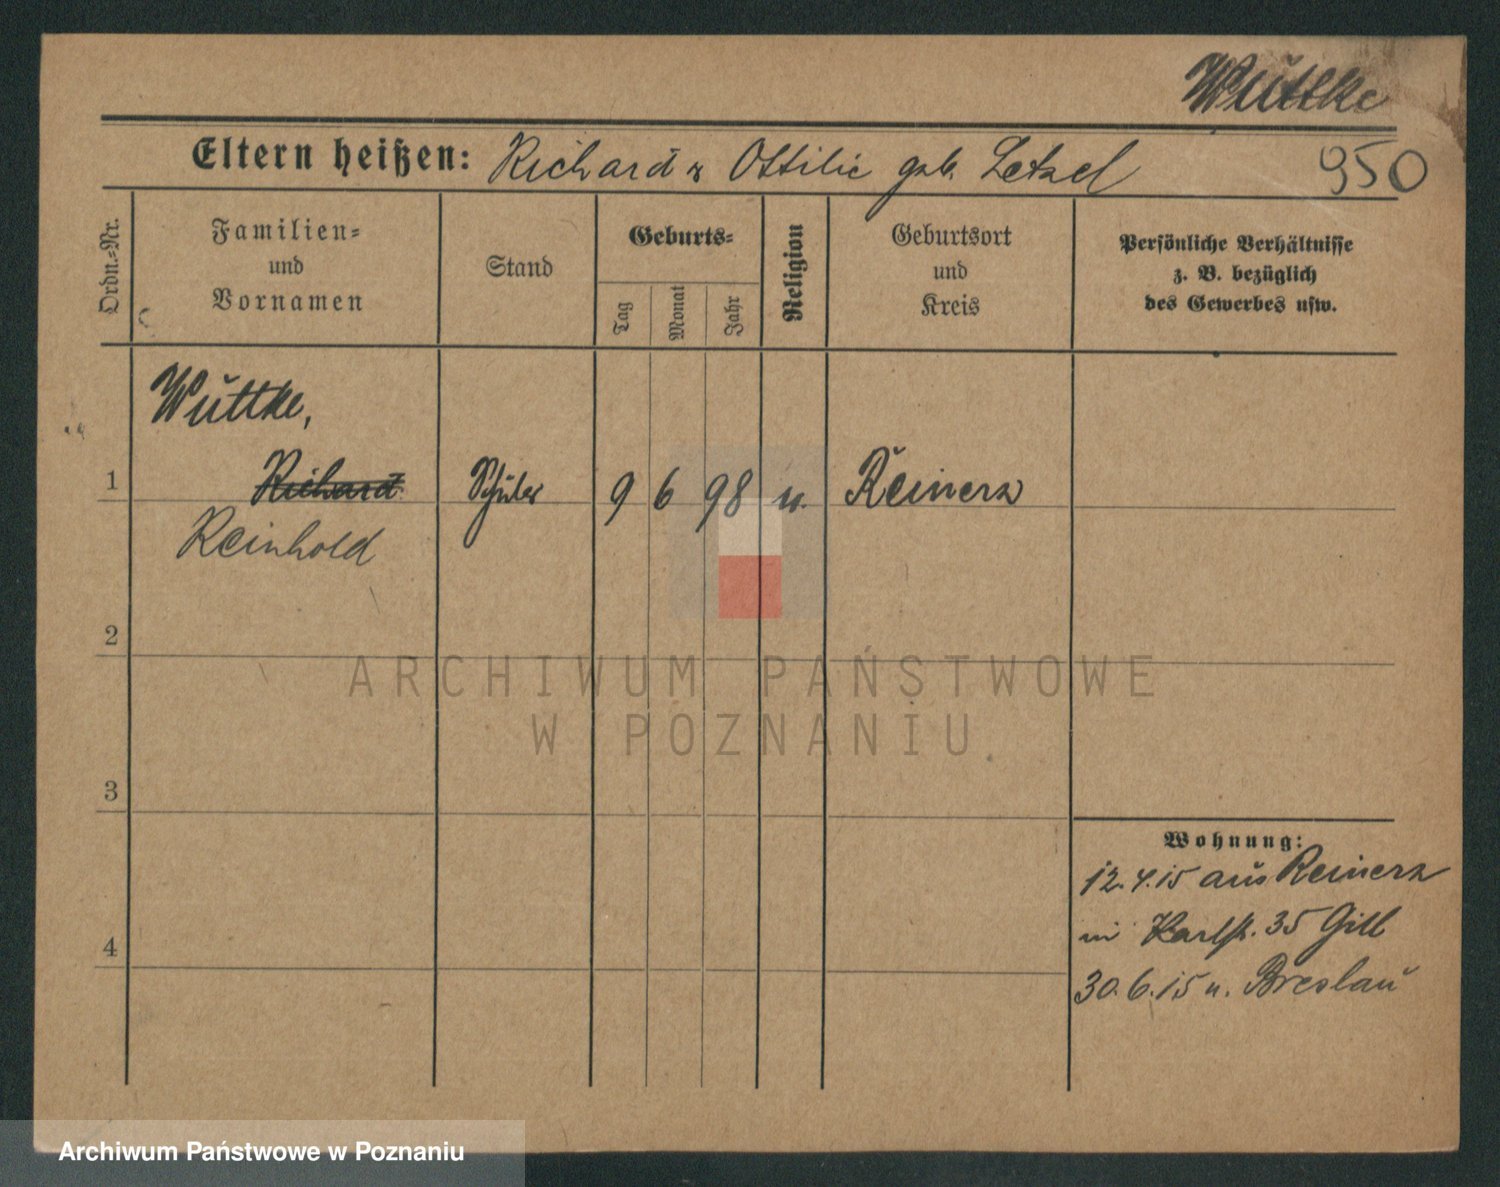 Wuttke
Eltern heißen: Richard u Ottilie geb. Letzel
950
Ordn.-Nr.
Familien-
und
Vornamen
Stand
Geburts-
Tag
Monat
Jahr
Religion
Geburtsort
und
Kreis
Persönliche Verhältnisse
z. B. bezüglich
des Gewerbes usw.
Wuttke,
1 Richard Schüler 9 6 98 Reinerz
Reinhold
2
ARCHIWUM PAŃSTWOWE
W POZNANIU
3
Wohnung:
12.4.15 aus Reinerz
in Karlstr. 35 Gill
4
30.6.15 n. Breslau
Archiwum Państwowe w Poznaniu